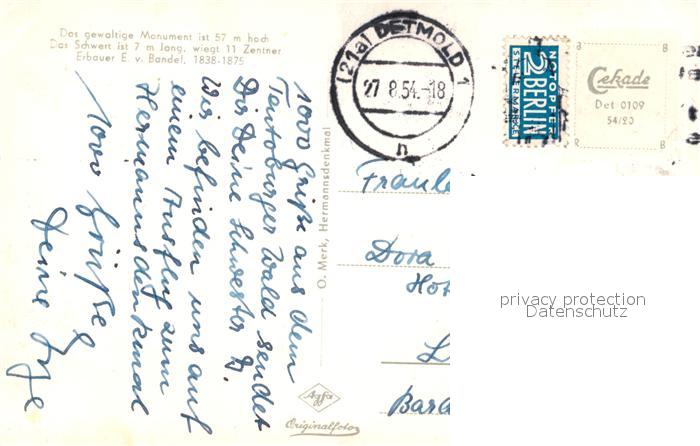 Das gewaltige Monument ist 57 m hoch
Das Schwert ist 7 m lang, wiegt 11 Zentner
Erbauer E. v. Bandel, 1838-1875
1000 Grüße aus dem
Teutoburger Wald sendet
Dir Deine Schwester
Wir befinden uns auf
einem Ausflug zum
Hermannsdenkmal
1000 Grüße
Deine Inge
O. Merk, Hermannsdenkmal
Agfa
Originalfoto
(21a) DETMOLD 1
27.8.54.-18
n
NOTOPFER
2 BERLIN
STEUERMARKE
B B
Cekade
Det 0109
54/20
R B
Fraule
Dora
Hot
L
Bard
privacy protection
Datenschutz